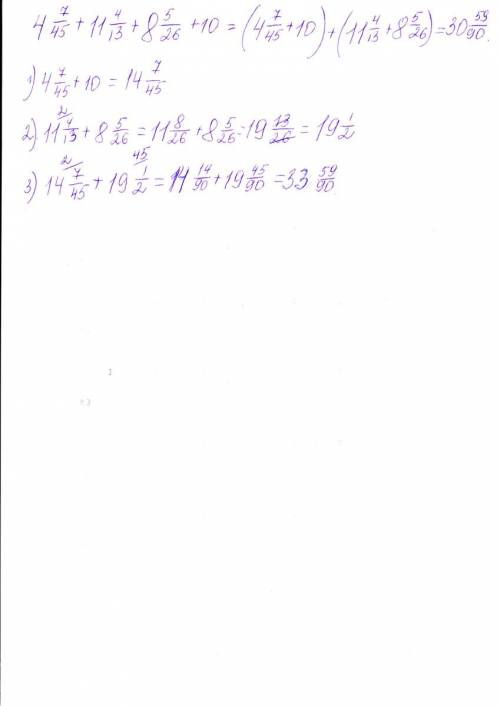 4 7/45 + 11 4/13 + 8 5/26 + 10 = (4 7/45 + 10) + (11 4/13 + 8 5/26) = 30 59/90
1) 4 7/45 + 10 = 14 7/45
2) 11 4/13 2/ + 8 5/26 = 11 8/26 + 8 5/26 = 19 13/26 = 19 1/2
3) 14 7/45 2/ + 19 1/2 45/ = 14 14/90 + 19 45/90 = 33 59/90